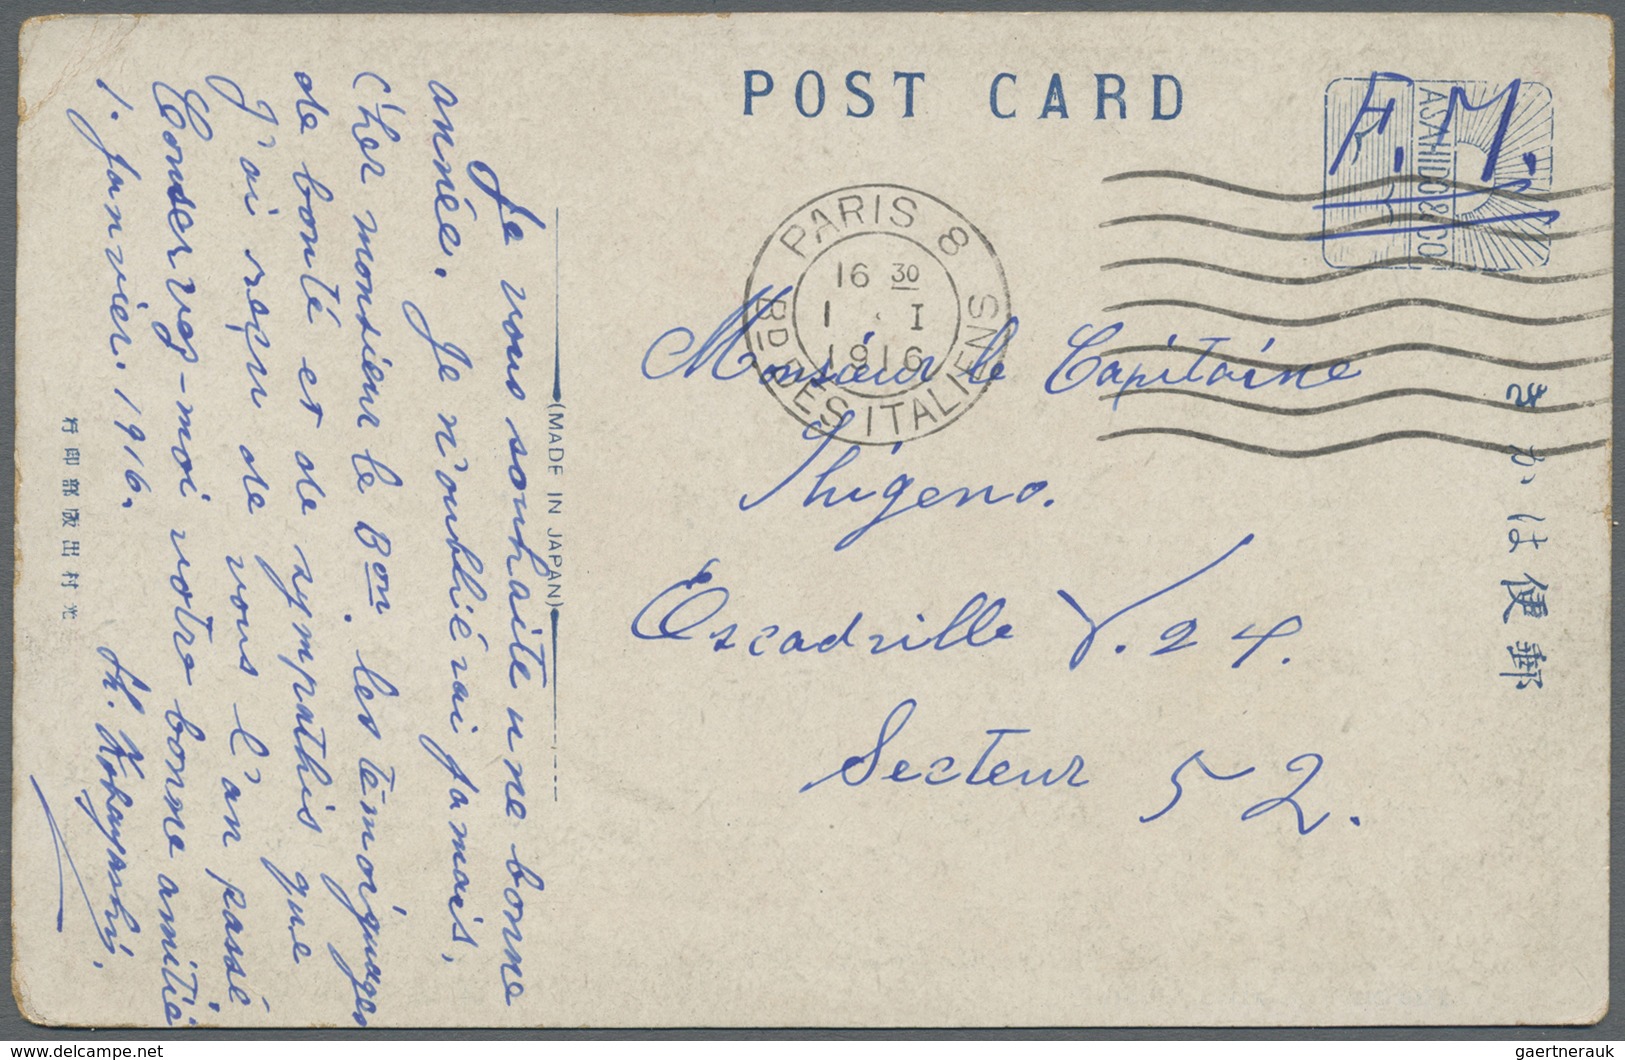 POST CARD
F. M.
ASAHIDO & CO
PARIS 8
16 30
1 . I
1916
Bd DES ITALIENS
Monsieur le Capitaine
Shigeno.
Escadrille V. 24.
Secteur 52.
Je vous souhaite une bonne
année. Je n'oubliérai jamais,
Cher monsieur le Bon. les témoignages
de bonté et de sympathis que
J'ai reçu de vous l'an passé
Conservez-moi votre bonne amitié
1. Janvier. 1916.
Sh. Kobayashi.
(MADE IN JAPAN)
郵便はかき
光村出版部印行
gaertnerauk